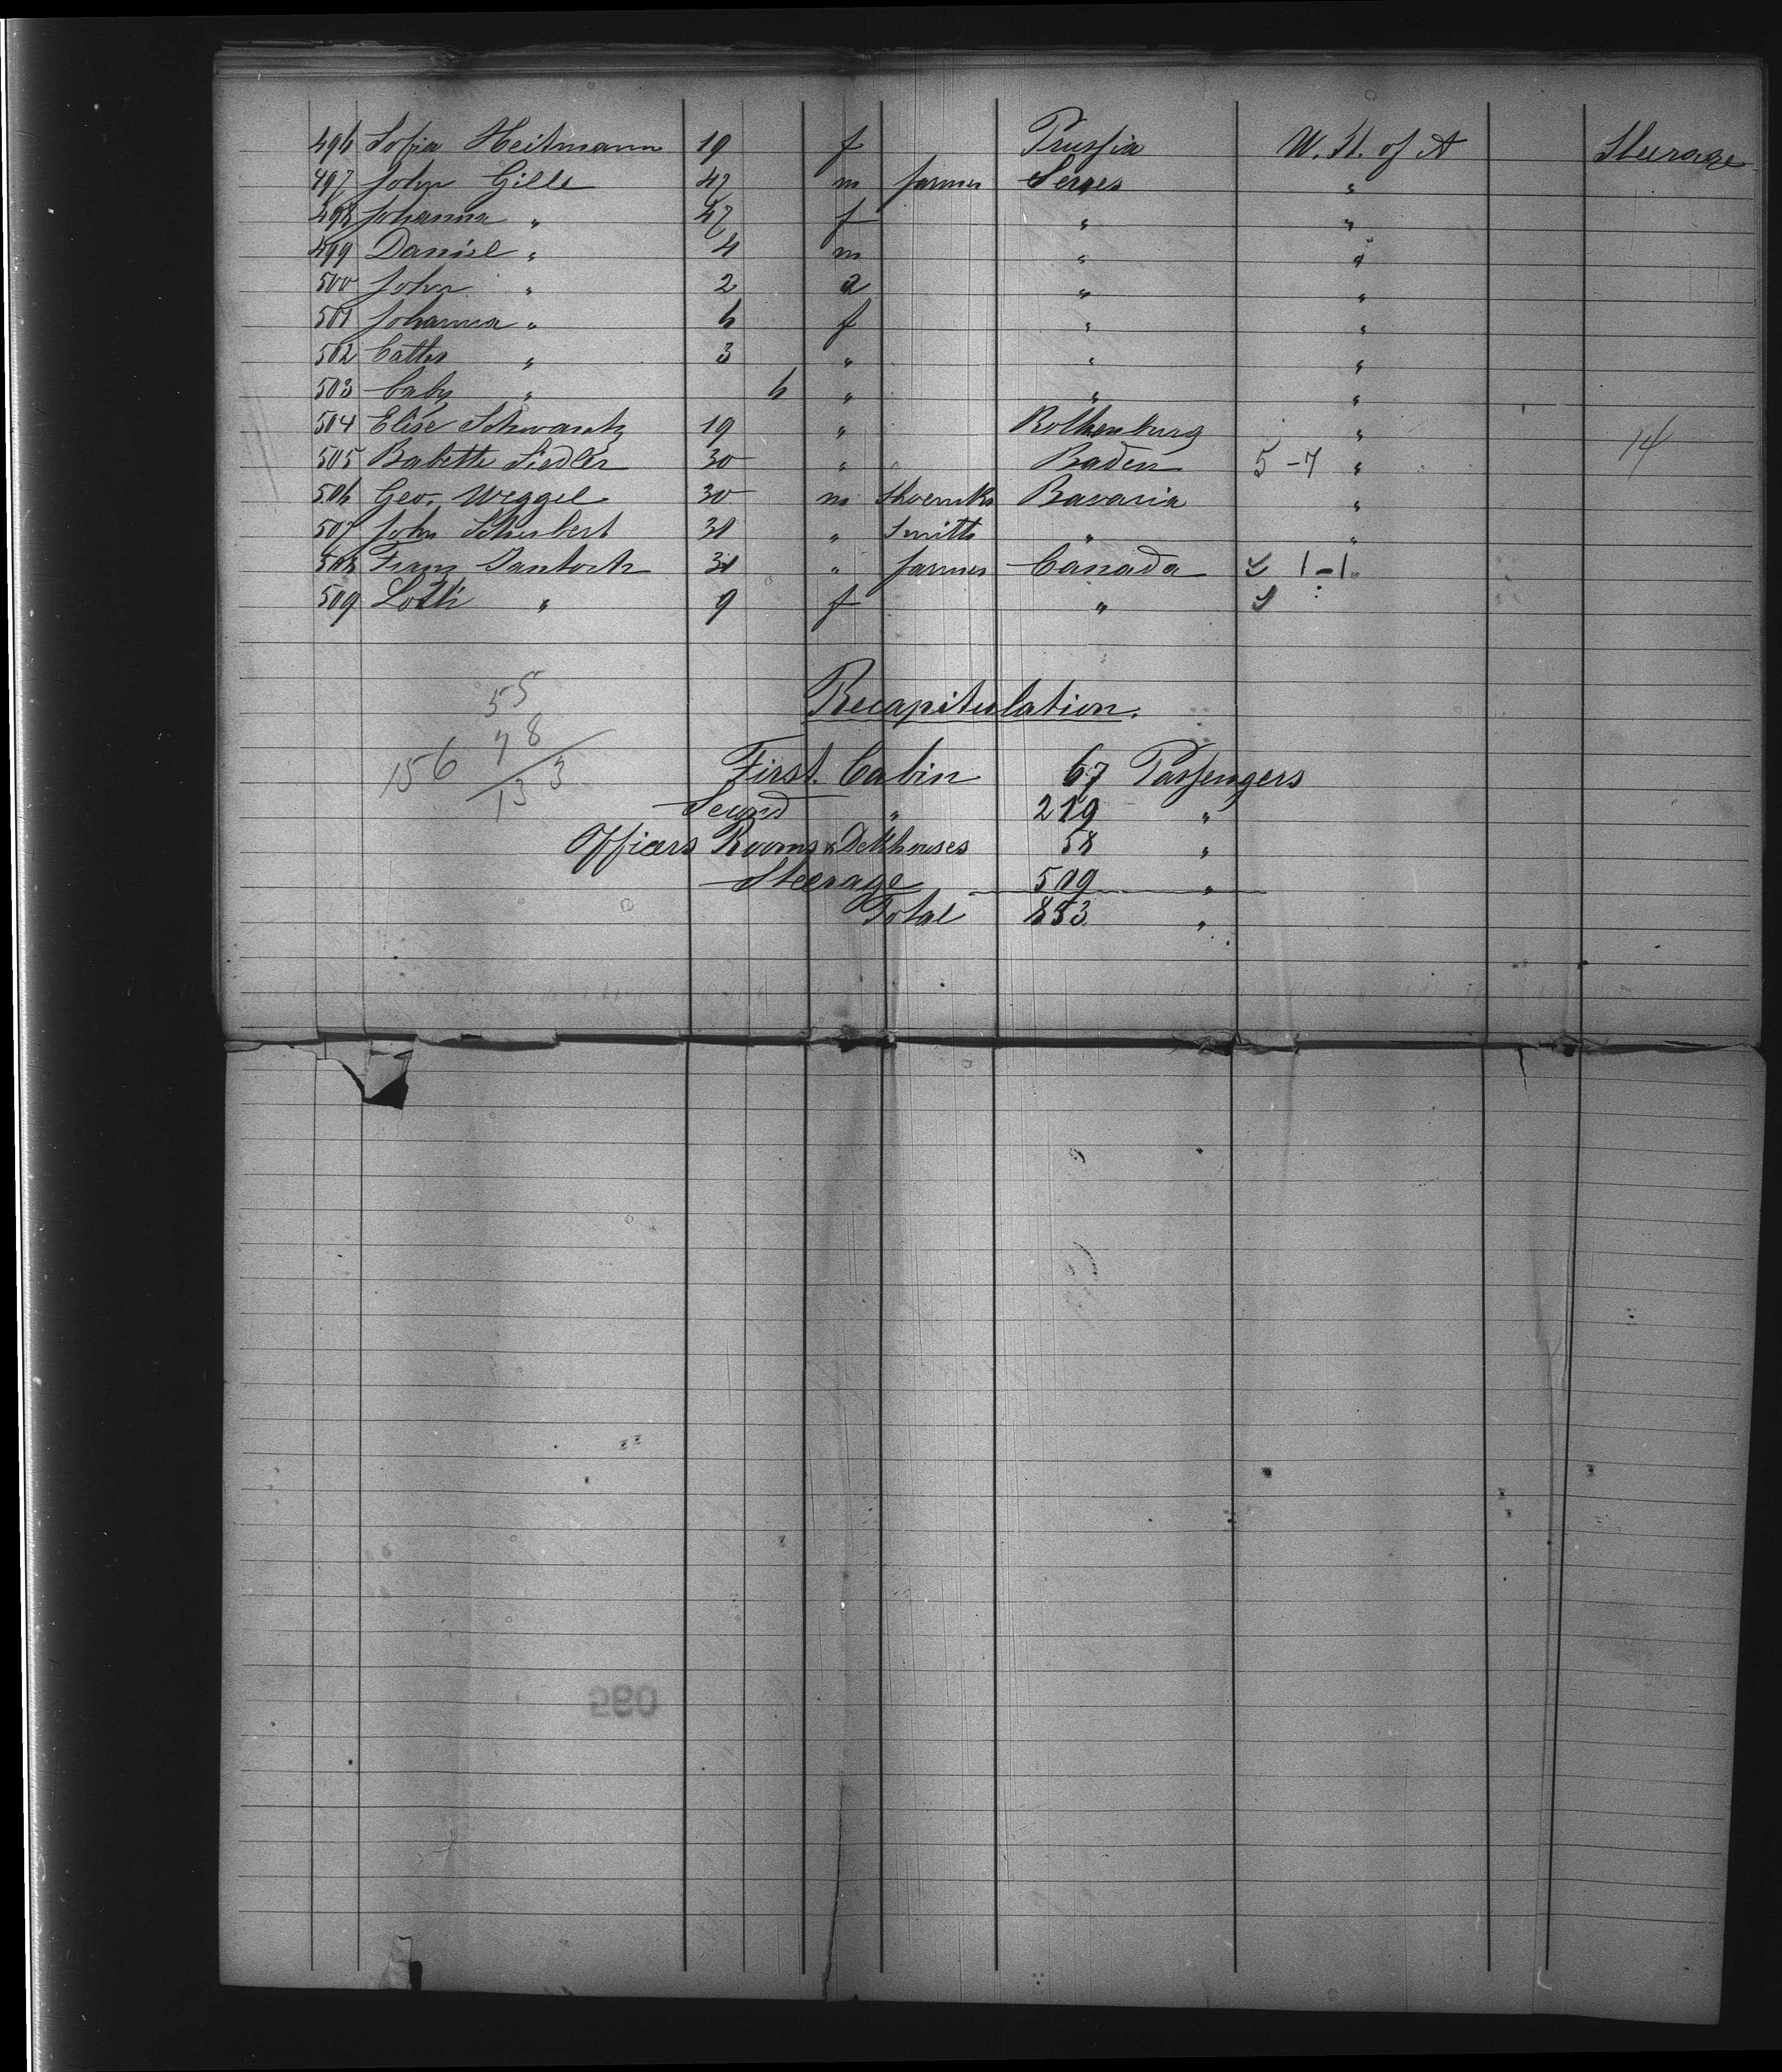 496 Sofia Heitmann 19 f Prussia U. St. of A Steerage
497 John Gille 42 m farmer Serres "
498 Johanna " 42 f " "
499 Daniel " 4 m " "
500 John " 2 a " "
501 Johanna " 6 f " "
502 Cattes " 3 " " "
503 Baby " 6 " " "
504 Elise Schwartz 19 " Rothenburg "
505 Babette Siedler 30 " Baden 5-7 " 14
506 Geo. Weggel 30 m Shoemkr Bavaria "
507 John Schubert 31 " Smith " "
508 Franz 31 " farmer Canada 1-1
509 Lotti " 9 f "
55
Recapitulation.
78
156
133
First. Cabin 67 Passengers
Second " 219 "
Officers Rooms & Dekhouses 58 "
Steerage 509 "
Total 853 "
590